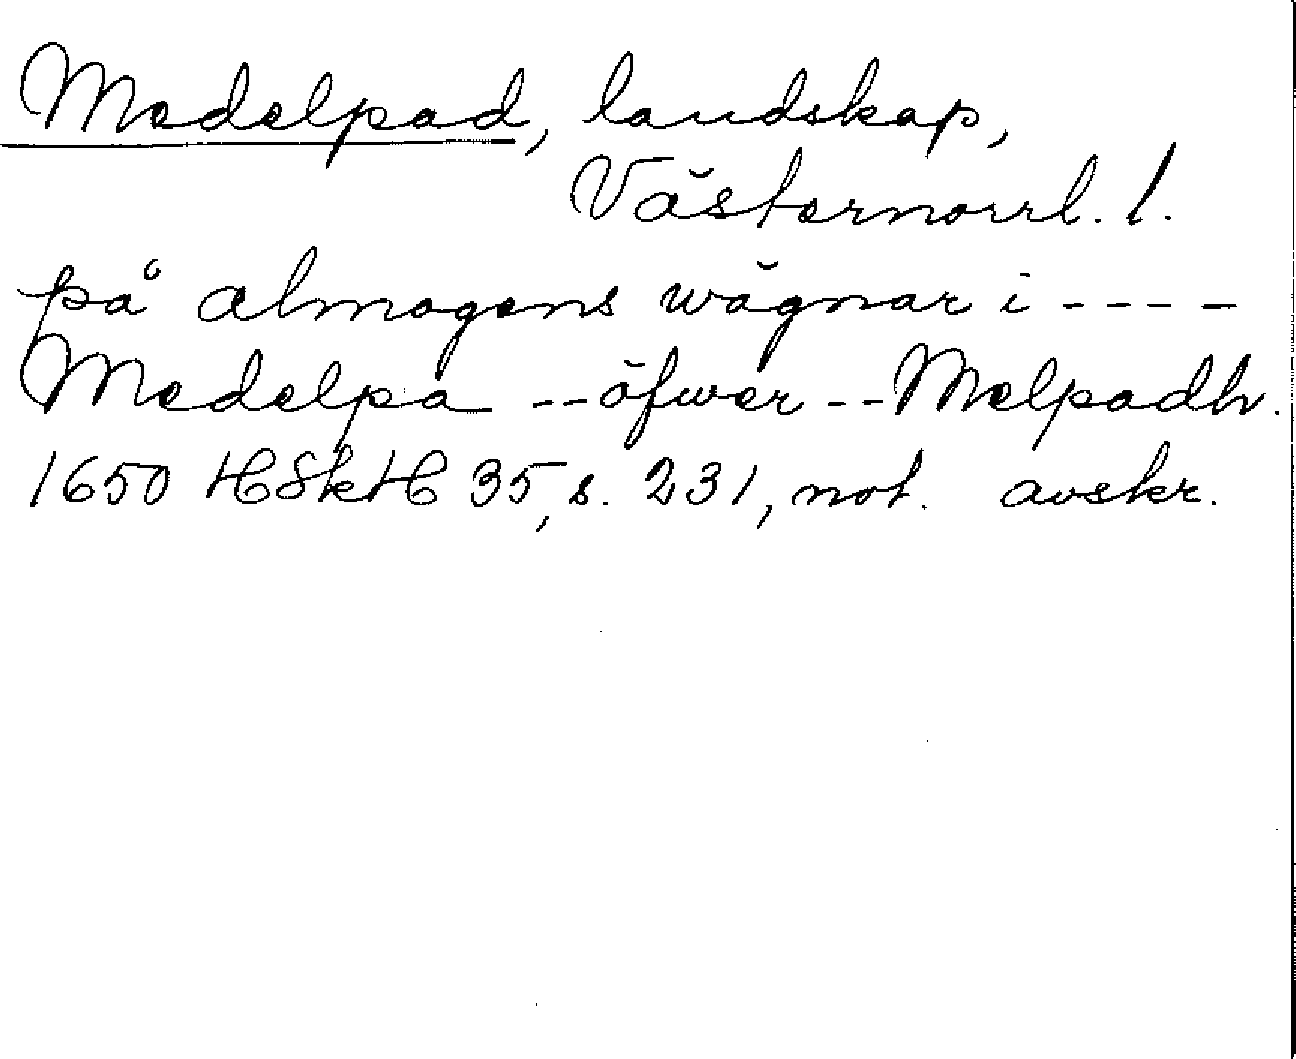 Medelpad, landskap,
Västernorrl. l.
på almogens wägnar i ----
Medelpa -- öfwer -- Melpadh.
1650 HSkH 35, s. 231, not. avskr.